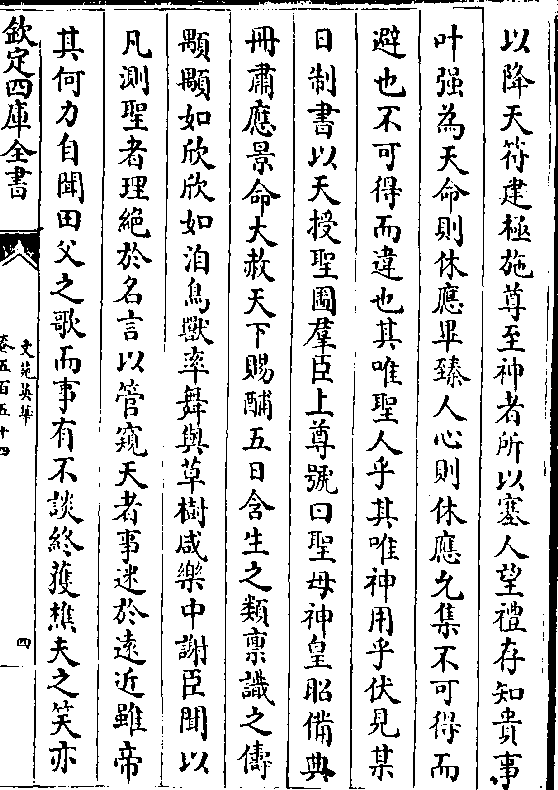 以降天符建極施尊至神者所以塞人望禮存知貴事
叶强為天命則休應畢臻人心則休應允集不可得而
避也不可得而違也其唯聖人乎其唯神用乎伏見某
日制書以天授聖圖羣臣上尊號曰聖母神皇昭備典
冊肅應景命大赦天下賜酺五日含生之類稟識之儔
顒顒如欣欣如洎鳥獸率舞與草樹咸樂中謝臣聞以
凡測聖者理絶於名言以管窺天者事迷於逺近雖帝
其何力自聞田父之歌而事有不談終獲樵夫之笑亦
欽定四庫全書
文苑英華
卷五百五十四
四